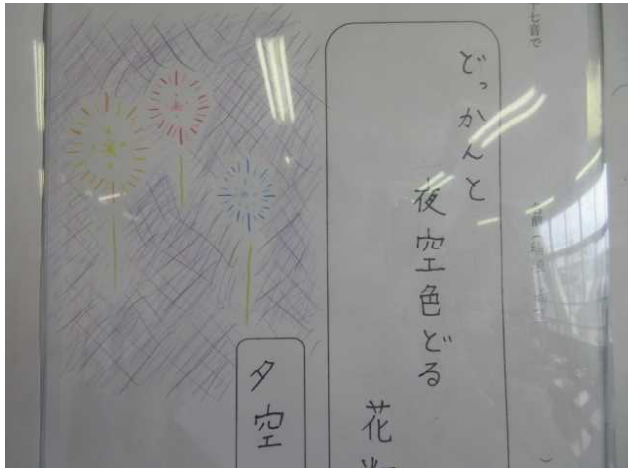 十七音で
どっかんと
夜空色どる
花
夕空